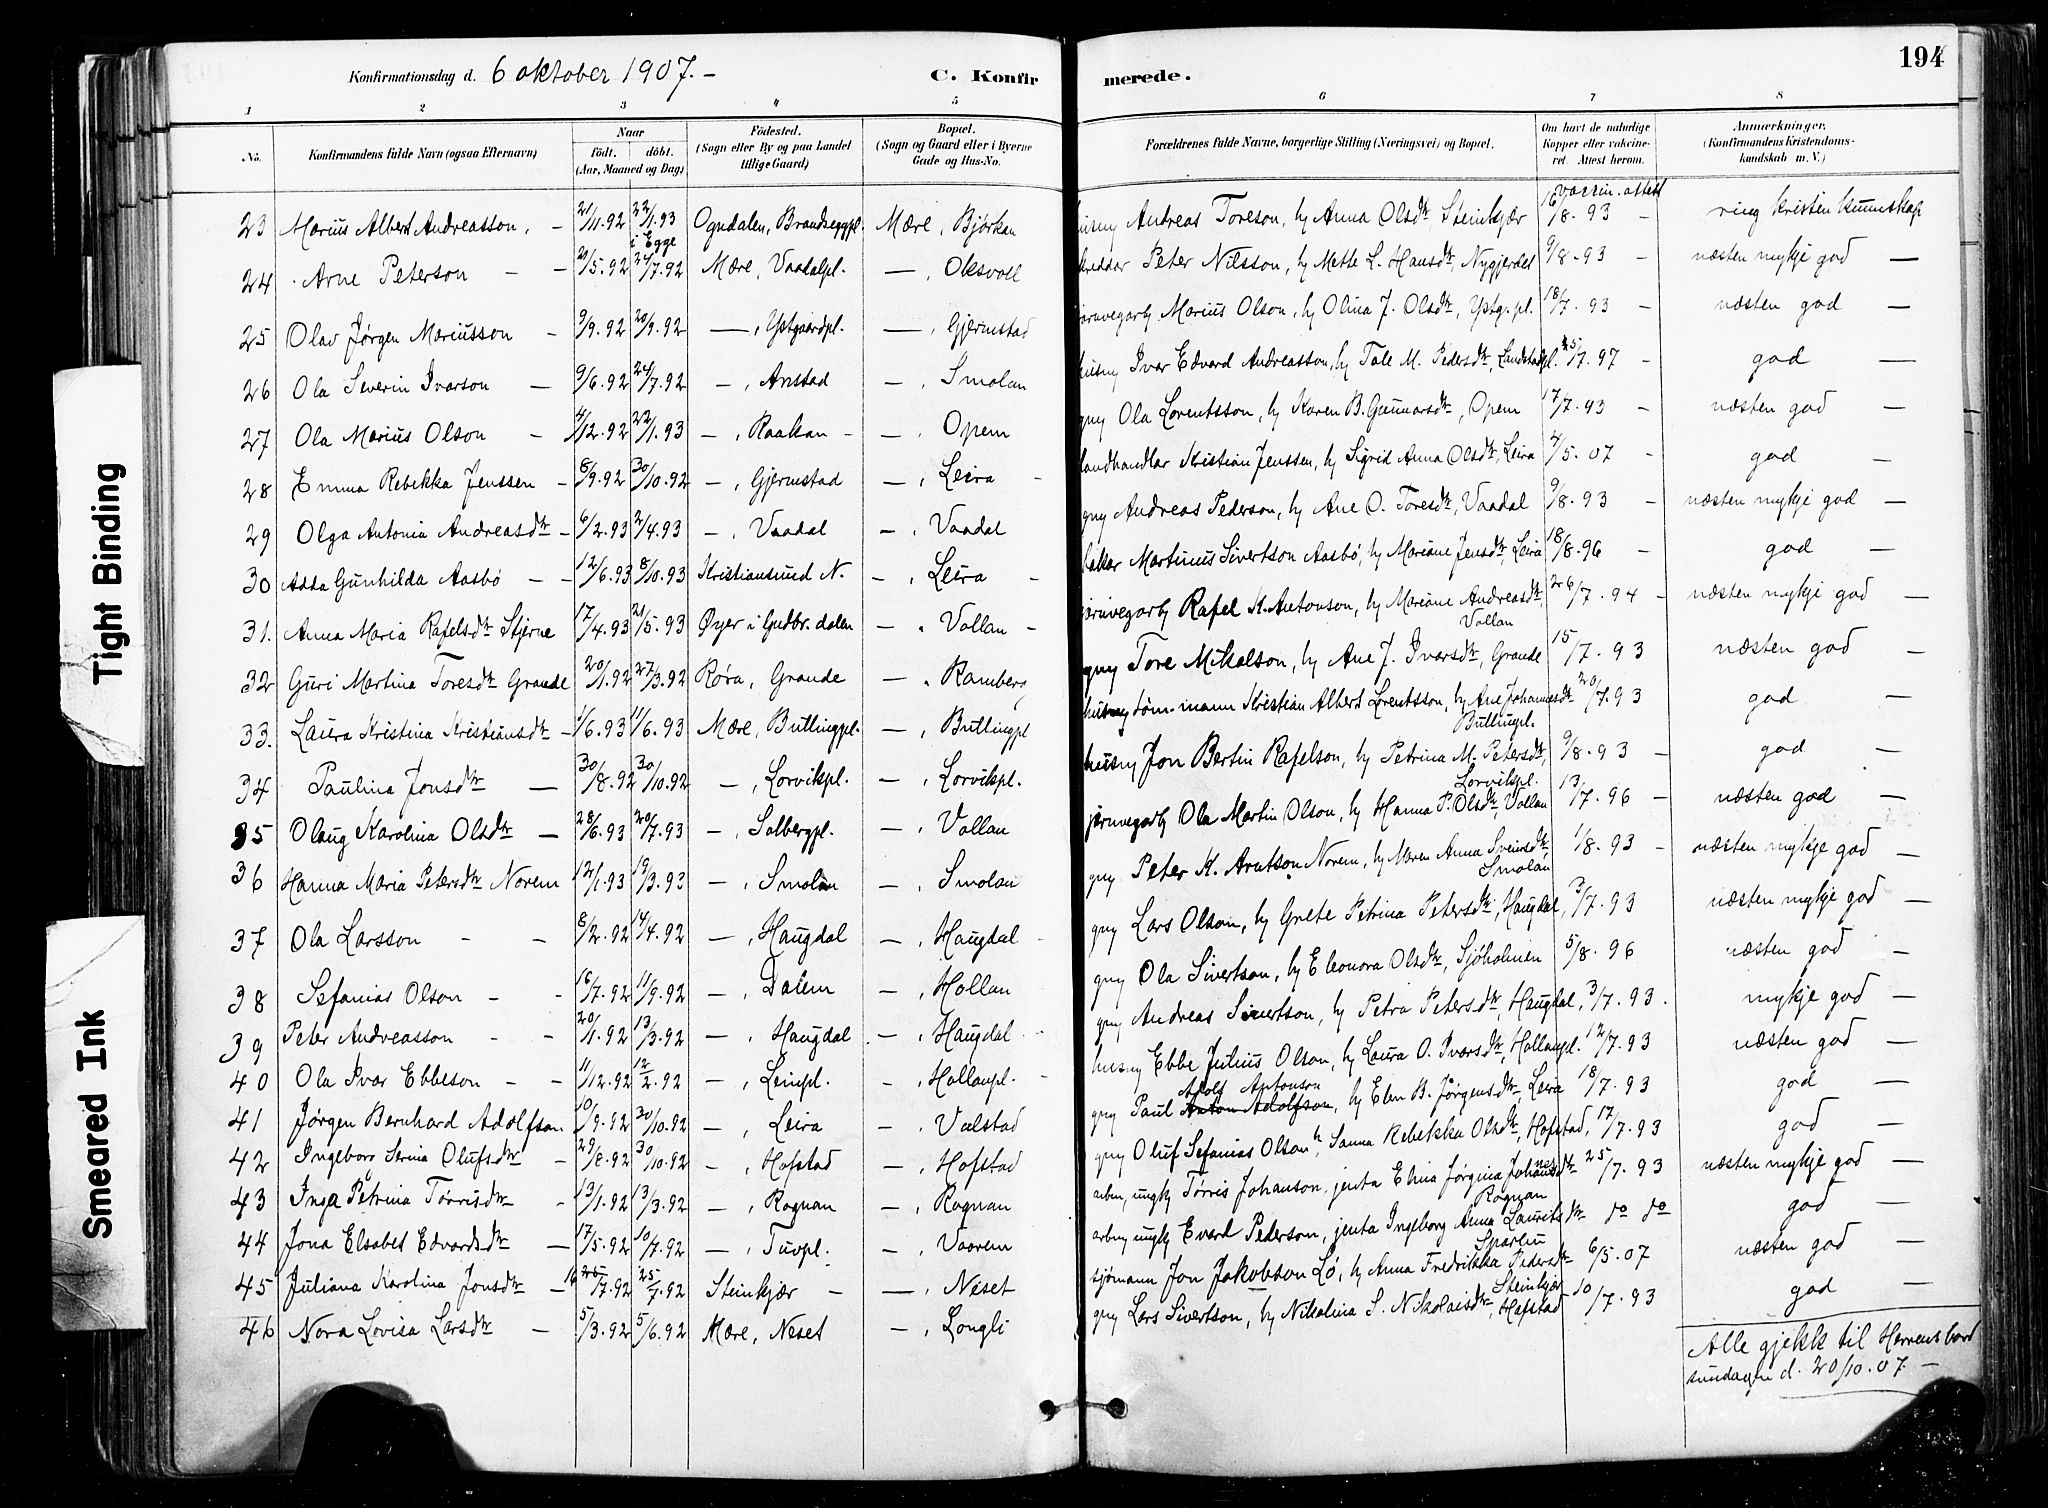 194
Konfirmationsdag d. 6 oktober 1907. –
C. Konfirmerede.
1 2 3 4 5 6 7 8
No. Konfirmandens fulde Navn (ogsaa Efternavn) Naar Födt. döbt. (Aar, Maaned og Dag) Födested. (Sogn eller By og paa Landet tillige Gaard) Bopæl. (Sogn og Gaard eller i Byerne Gade og Hus-No. Forældrenes fulde Navne, borgerlige Stilling (Næringsvei) og Bopæl. Om havt de naturlige Kopper eller vakcineret. Attest herom. Anmærkninger. (Konfirmandens Kristendomskundskab m. V.)
vaccin. attest
23 Marius Albert Andreasson. – 21/11.92 22/1.93 i Egge Ogndalen, Brandseggpl. Mære, Bjørkan husmy Andreas Toreson, hy Anna Olsdtr, Steinkjær 16/8.93 – ring kristen kunnskap
24 Arne Peterson – – 20/5.92 24/7.92 Mære, Vaadalpl. –, Oksvoll skreddar Peter Nilsson, hy Mette L. Hansdtr, Nygjerdet 9/8.93 – næsten mykje god –
25 Olav Jørgen Mariusson – 9/9.92 20/9.92 –, Ystgaardpl. –, Gjermstad jarnvegarb Marius Olson, hy Olina J. Olsdtr, Ystg.pl. 18/7.93 – næsten god –
26 Ola Severin Ivarson – 9/6.92 24/7.92 –, Anstad –, Smolan husmy Ivar Edvard Andreasson, hy Tale M. Pedersdtr, Landstadpl. 25/7.97 – god –
27 Ola Marius Olson – 4/12.92 22/1.93 –, Raakan – –, Opem gmy Ola Lorentsson, hy Karen B. Gunnarsdtr, Opem 17/7.93 – næsten god –
28 Emma Rebekka Jenssen – 8/9.92 30/10.92 –, Gjermstad –, Leira – landhandlar Kristian Jenssen, hy Sigrid Anna Olsdtr, Leira 4/5.07 – god –
29 Olga Antonia Andreasdtr – 6/2.93 2/4.93 –, Vaadal –, Vaadal gmy Andreas Pederson, hy Ane O. Toresdtr, Vaadal 9/8.93 – næsten mykje god –
30 Asta Gunhilda Aasbö – – 12/6.93 8/10.93 Kristiansund N. –, Leira – bakar Martinus Sivertson Aasbö, hy Mariane Jensdtr, Leira 18/8.96 – god –
31. Anna Maria Rafelsdtr Stjerne 17/4.93 21/5.93 Øyer i Gudbr.dalen –, Vollan – jarnvegarb Rafel K. Antonson, hy Mariane Andreasdtr, Vollan 26/7.94 – næsten mykje god –
32 Guri Martina Toresdtr Grande 20/1.92 27/3.92 Røra, Grande –, Ramberg gmy Tore Mikalson, hy Ane J. Ivarsdtr, Grande 15/7.93 næsten god –
33. Laura Kristina Kristiansdtr – 1/6.93 11/6.93 Mære, Buttingpl. –, Buttingpl husmy tömmann Kristian Albert Lorentsson, hy Ane Johannesdtr Buttingpl. 20/7.93 god –
34 Paulina Jonsdtr – 30/8.92 30/10.92 –, Lorvikpl. –, Lorvikpl. husmy Jon Bertin Rafelson, hy Petrina M. Petersdtr, Lorvikpl. 9/8.93 – god –
35 Olaug Karolina Olsdtr – 28/6.93 20/7.93 –, Solbergpl. –, Vollan jernvegarb Ola Martin Olson, hy Hanna P. Olsdtr, Vollan 13/7.96 – næsten god –
36 Hanna Maria Petersdtr Norem 12/1.93 19/3.93 –, Smolan –, Smolan gmy Peter K. Arntson Norem, hy Maren Anna Sveinsdtr Smolan 1/8.93 – næsten mykje god –
37 Ola Larsson – – 8/2.92 14/4.92 –, Haugdal –, Haugdal – gmy Lars Olson, hy Grete Petrina Petersdtr, Haugdal, 3/7.93 næsten mykje god –
38 Sefanias Olson – – 16/7.92 11/9.92 –, Dalem –, Hollan gmy Ola Sivertson, hy Eleonora Olsdtr, Sjøholmen 5/8.96 næsten god –
39 Peter Andreasson – – 20/1.92 13/3.92 –, Haugdal –, Haugdal gmy Andreas Sivertson, hy Petra Petersdtr, Haugdal, 3/7.93. mykje god –
40 Ola Ivar Ebbeson – – 11/12.92 12/2.92 –, Leinpl. –, Hollanpl. – husmy Ebbe Julius Olson, hy Laura O. Ivarsdtr, Hollanpl. 12/7.93 næsten god –
41 Jørgen Bernhard Adolfson 10/9.92 30/10.92 –, Leira –, Valstad gmy Paul Adolf Antonson, hy Elen B. Jørgensdtr, Leira 18/7.93 god –
42 Ingeborg Serina Olufsdtr – 29/8.92 30/10.92 –, Hofstad –, Hofstad gmy Oluf Sefanias Olson, h Sanna Rebekka Olsdtr, Hofstad, 17/7.93 god –
43 Inga Petrina Tørrisdtr – 13/1.92 13/3.92 –, Rognan –, Rognan arbm, ungk Tørris Johanson, jenta Elina Jørgina Johannesdtr Rognan 25/7.93 næsten mykje god –
44 Jona Elsabet Edvardsdtr – 17/5.92 10/7.92 –, Tuvpl. –, Vaarem arbmy ungk Evard Pederson, jenta Ingeborg Anna Lauritsdtr Sparbu do do god –
45 Juliana Karolina Jonsdtr – 16/7.92 25/7.92 Steinkjær – –, Neset sjömann Jon Jakobson Lö, hy Anna Fredrikka Pedersdtr Steinkjær 6/5.07 næsten god –
46 Nora Lovisa Larsdtr – 5/3.92 5/6.92 Mære, Neset –, Longli gmy Lars Sivertson, hy Nikolina S. Nikolaisdtr, Hafstad 10/7.93 god –
Alle gjekk til Herrens bord
sundagen d. 20/10.07. –
Tight Binding
Smeared Ink